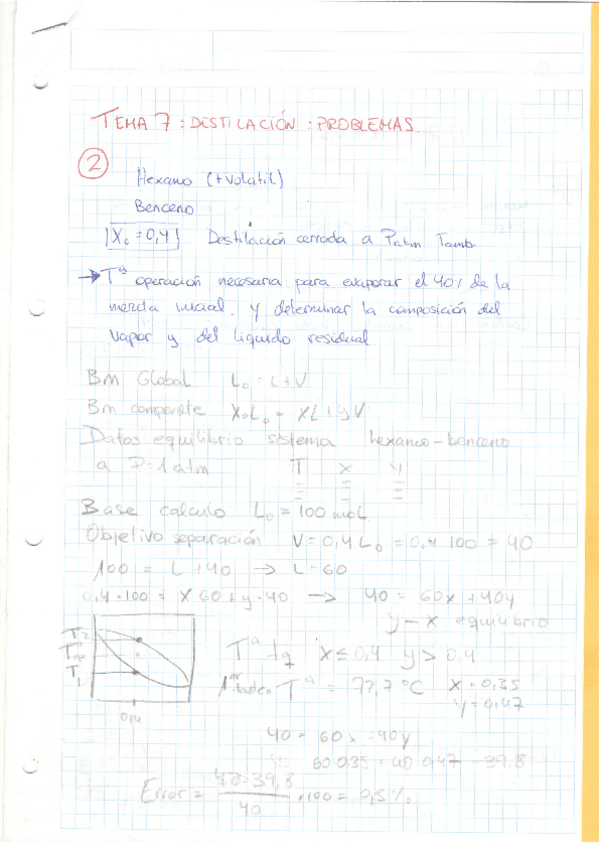 TEMA 7: DESTILACIÓN: PROBLEMAS.
2
Hexano (+volatil)
Benceno
X₀ = 0,4 Destilación cerrada a Patm Tamb.
→ Tª operación necesaria para evaporar el 40% de la
mezcla inicial. y determinar la composición del
vapor y del liquido residual
Bm Global L₀ = L + V
Bm componente X₀L₀ = XL + yV
Datos equilibrio sistema hexano-benceno
a P=1 atm T X Y
Base calculo L₀ = 100 mol
Objetivo separación V = 0,4 L₀ = 0,4 100 = 40
100 = L + 40 → L = 60
0,4·100 = X 60 + y·40 → 40 = 60x + 40y
y - x equilibrio
T₂
T₁
0,4
Tª tq X ≤ 0,4 y > 0,4
1er tanteo Tª = 77,7 °C X = 0,35
y = 0,47
40 = 60x + 40y
60 0,35 + 40 0,47 = 39,8
Error = 40-39,8 / 40 · 100 = 0,5%